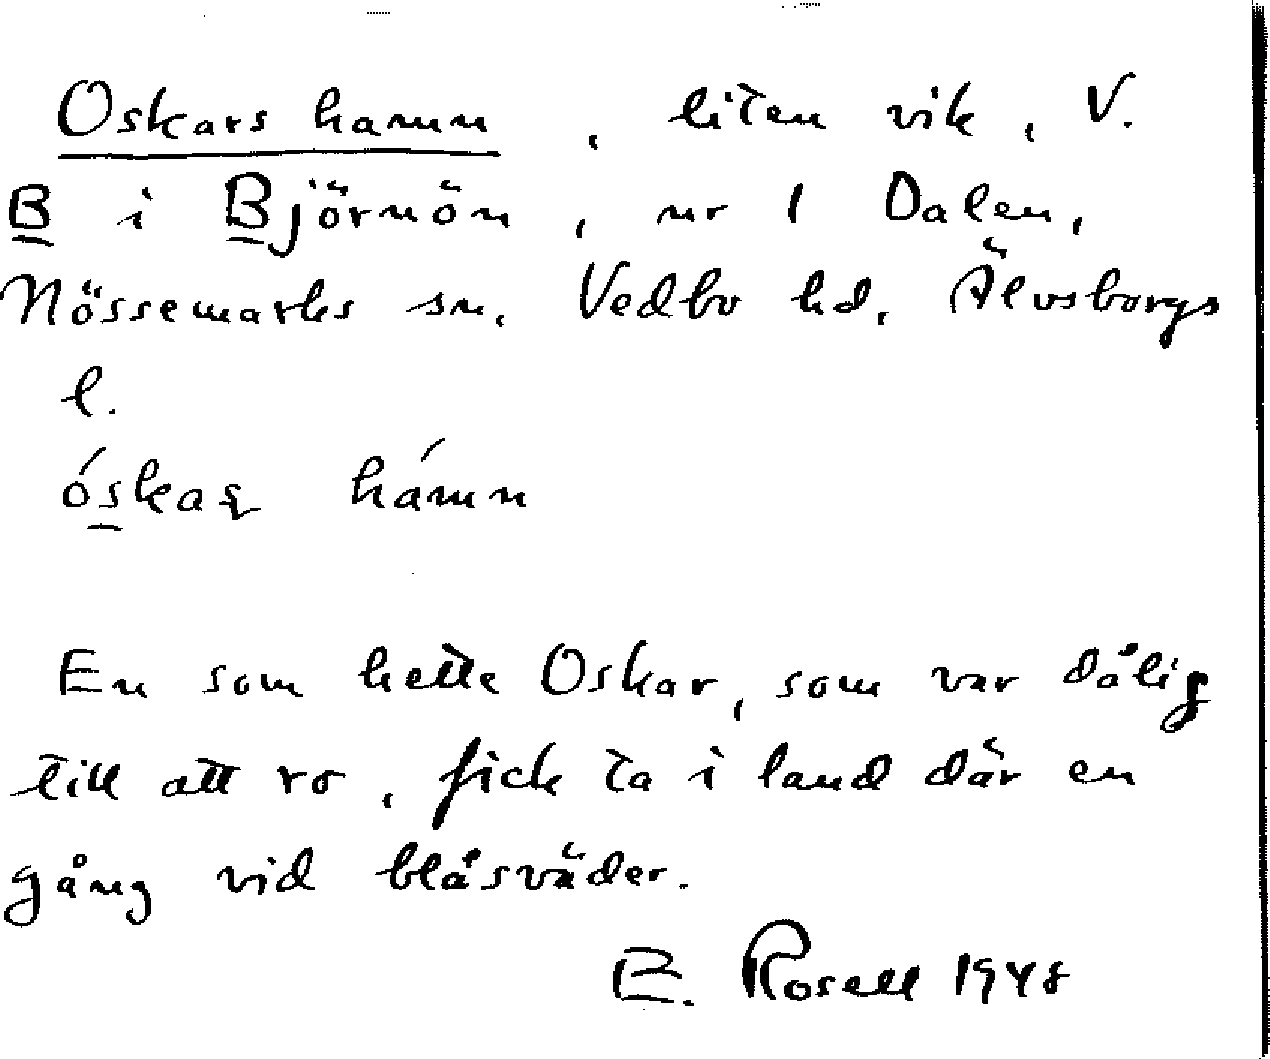 Oskars hamn, liten vik, V.
B i Björnön, nr 1 Dalen,
Nössemarks sn, Vedbo hd, Älvsborgs
l.
óskaʂ hámn
En som hette Oskar, som var dålig
till att ro, fick ta i land där en
gång vid blåsväder.
E. Rosell 1948